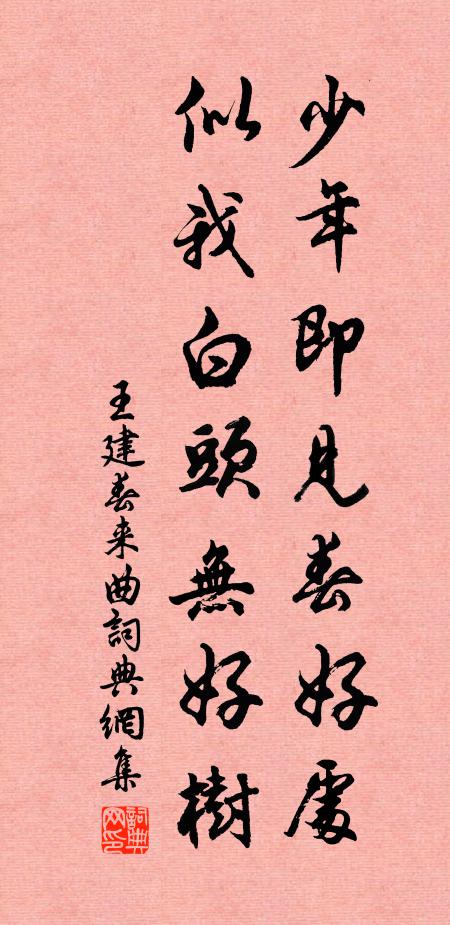 少年即見春好處
似我白頭無好樹
王建春来曲詞典網集
詞典网印